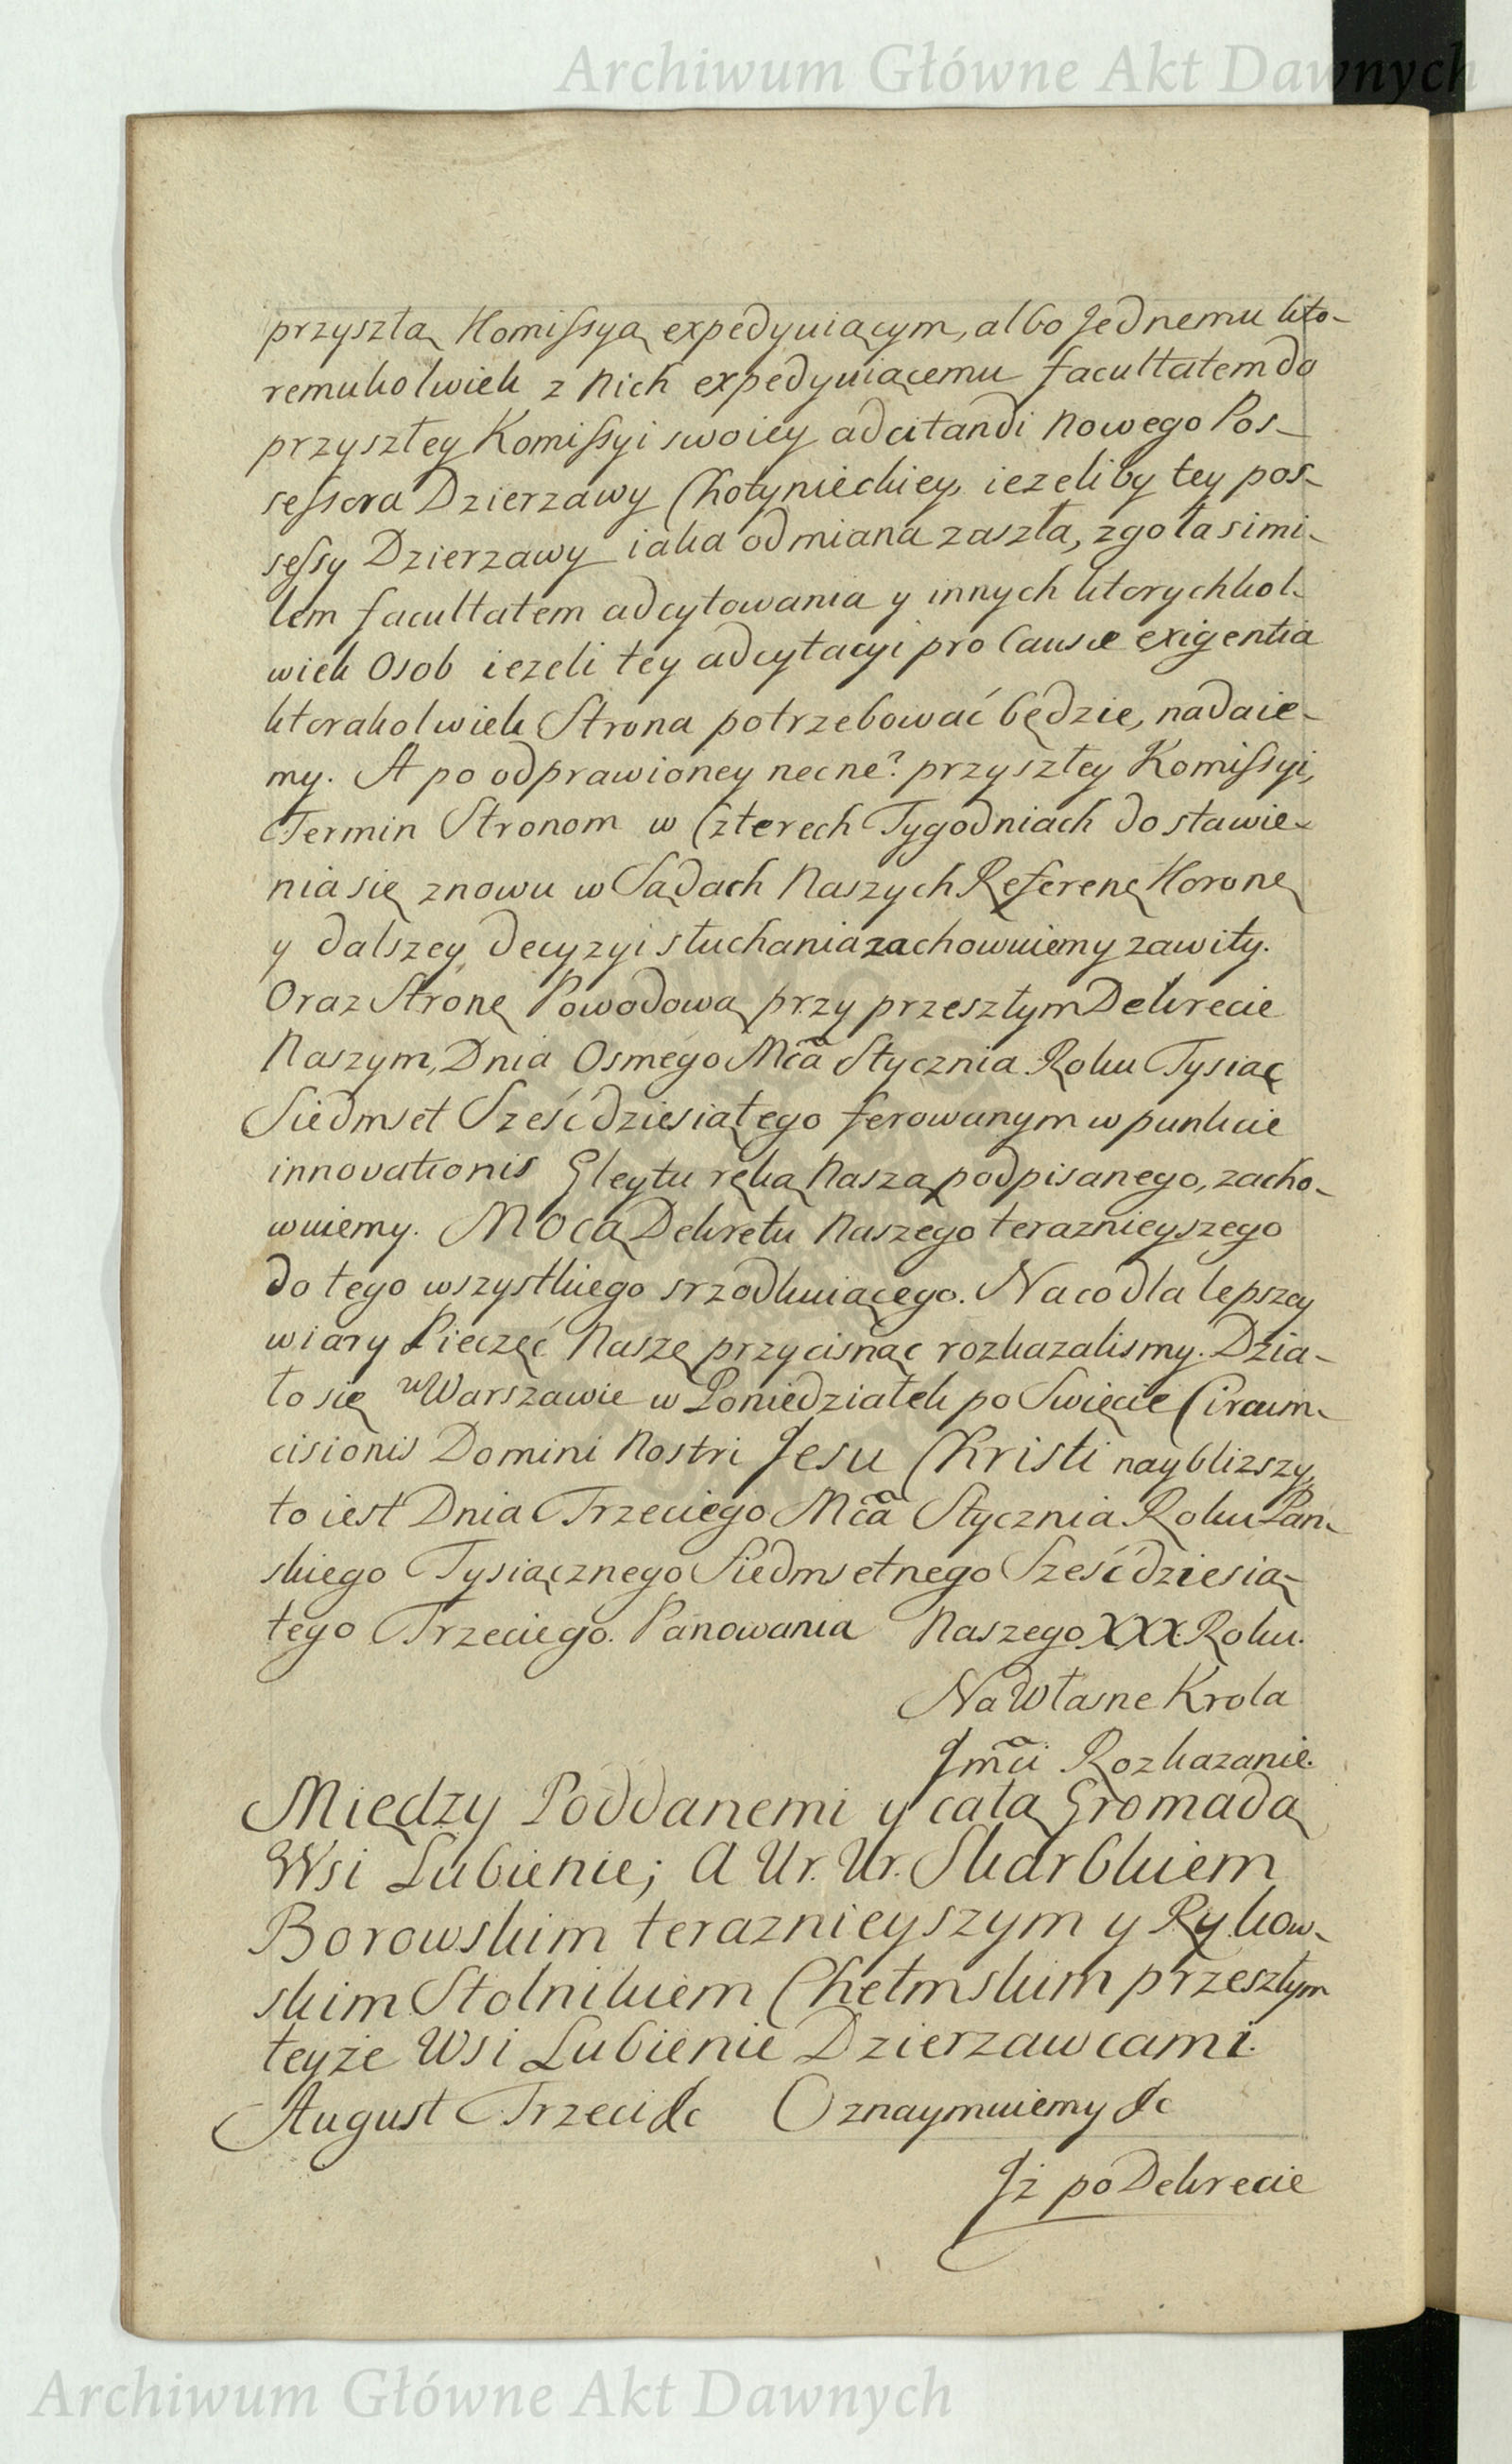 Archiwum Główne Akt Dawnych
przyszłą Komiſsyą expedyuiącym, albo Jednemu kto-
remukolwiek z Nich expedyuiącemu facultatem do
przyszłey Komiſsyi swoiey adcitandi Nowego Pos-
seſsora Dzierzawy Chotynieckiey, iezeliby tey pos-
seſsy Dzierzawy iaka odmiana zaszła, zgoła simi-
lem facultatem adcytowania y innych ktorychkol-
wiek Osob iezeli tey adcytacyi pro Causæ exigentia
ktorakolwiek Strona potrzebować będzie, nadaie-
my. A po odprawioney necne? przyszłey Komiſsyi,
Termin Stronom w Czterech Tygodniach do stawie-
nia się znowu w Sądach Naszych Referen: Koron:
y dalszey decyzyi słuchania zachowuiemy zawity.
Oraz Stronę Powodową przy przeszłym Dekrecie
Naszym, Dnia Osmego Mca Stycznia Roku Tysiąc
Siedmset Sześćdziesiątego ferowanym w punkcie
innovationis Gleytu ręką Naszą podpisanego, zacho-
wuiemy. Mocą Dekretu Naszego teraznieyszego
do tego wszystkiego srzodkuiącego. Na co dla lepszey
wiary Pieczęć Naszę przycisnąć rozkazalismy. Dzia-
ło się w Warszawie w Poniedziałek po Swięcie Circum-
cisionis Domini Nostri Jesu Christi nayblizszy,
to iest Dnia Trzeciego Mca Stycznia Roku Pan-
skiego Tysiącznego Siedmsetnego Sześćdziesią-
tego Trzeciego. Panowania Naszego XXX. Roku.
Na Własne Krola
Jmci Rozkazanie.
Między Poddanemi y całą Gromadą
Wsi Lubienie; a Ur. Ur. Skarbkiem
Borowskim teraznieyszym y Rykow-
skim Stolnikiem Chełmskim przeszłym
teyże Wsi Lubienie Dzierzawcami.
August Trzeci &c Oznaymuiemy &c
Jż po Dekrecie
Archiwum Główne Akt Dawnych